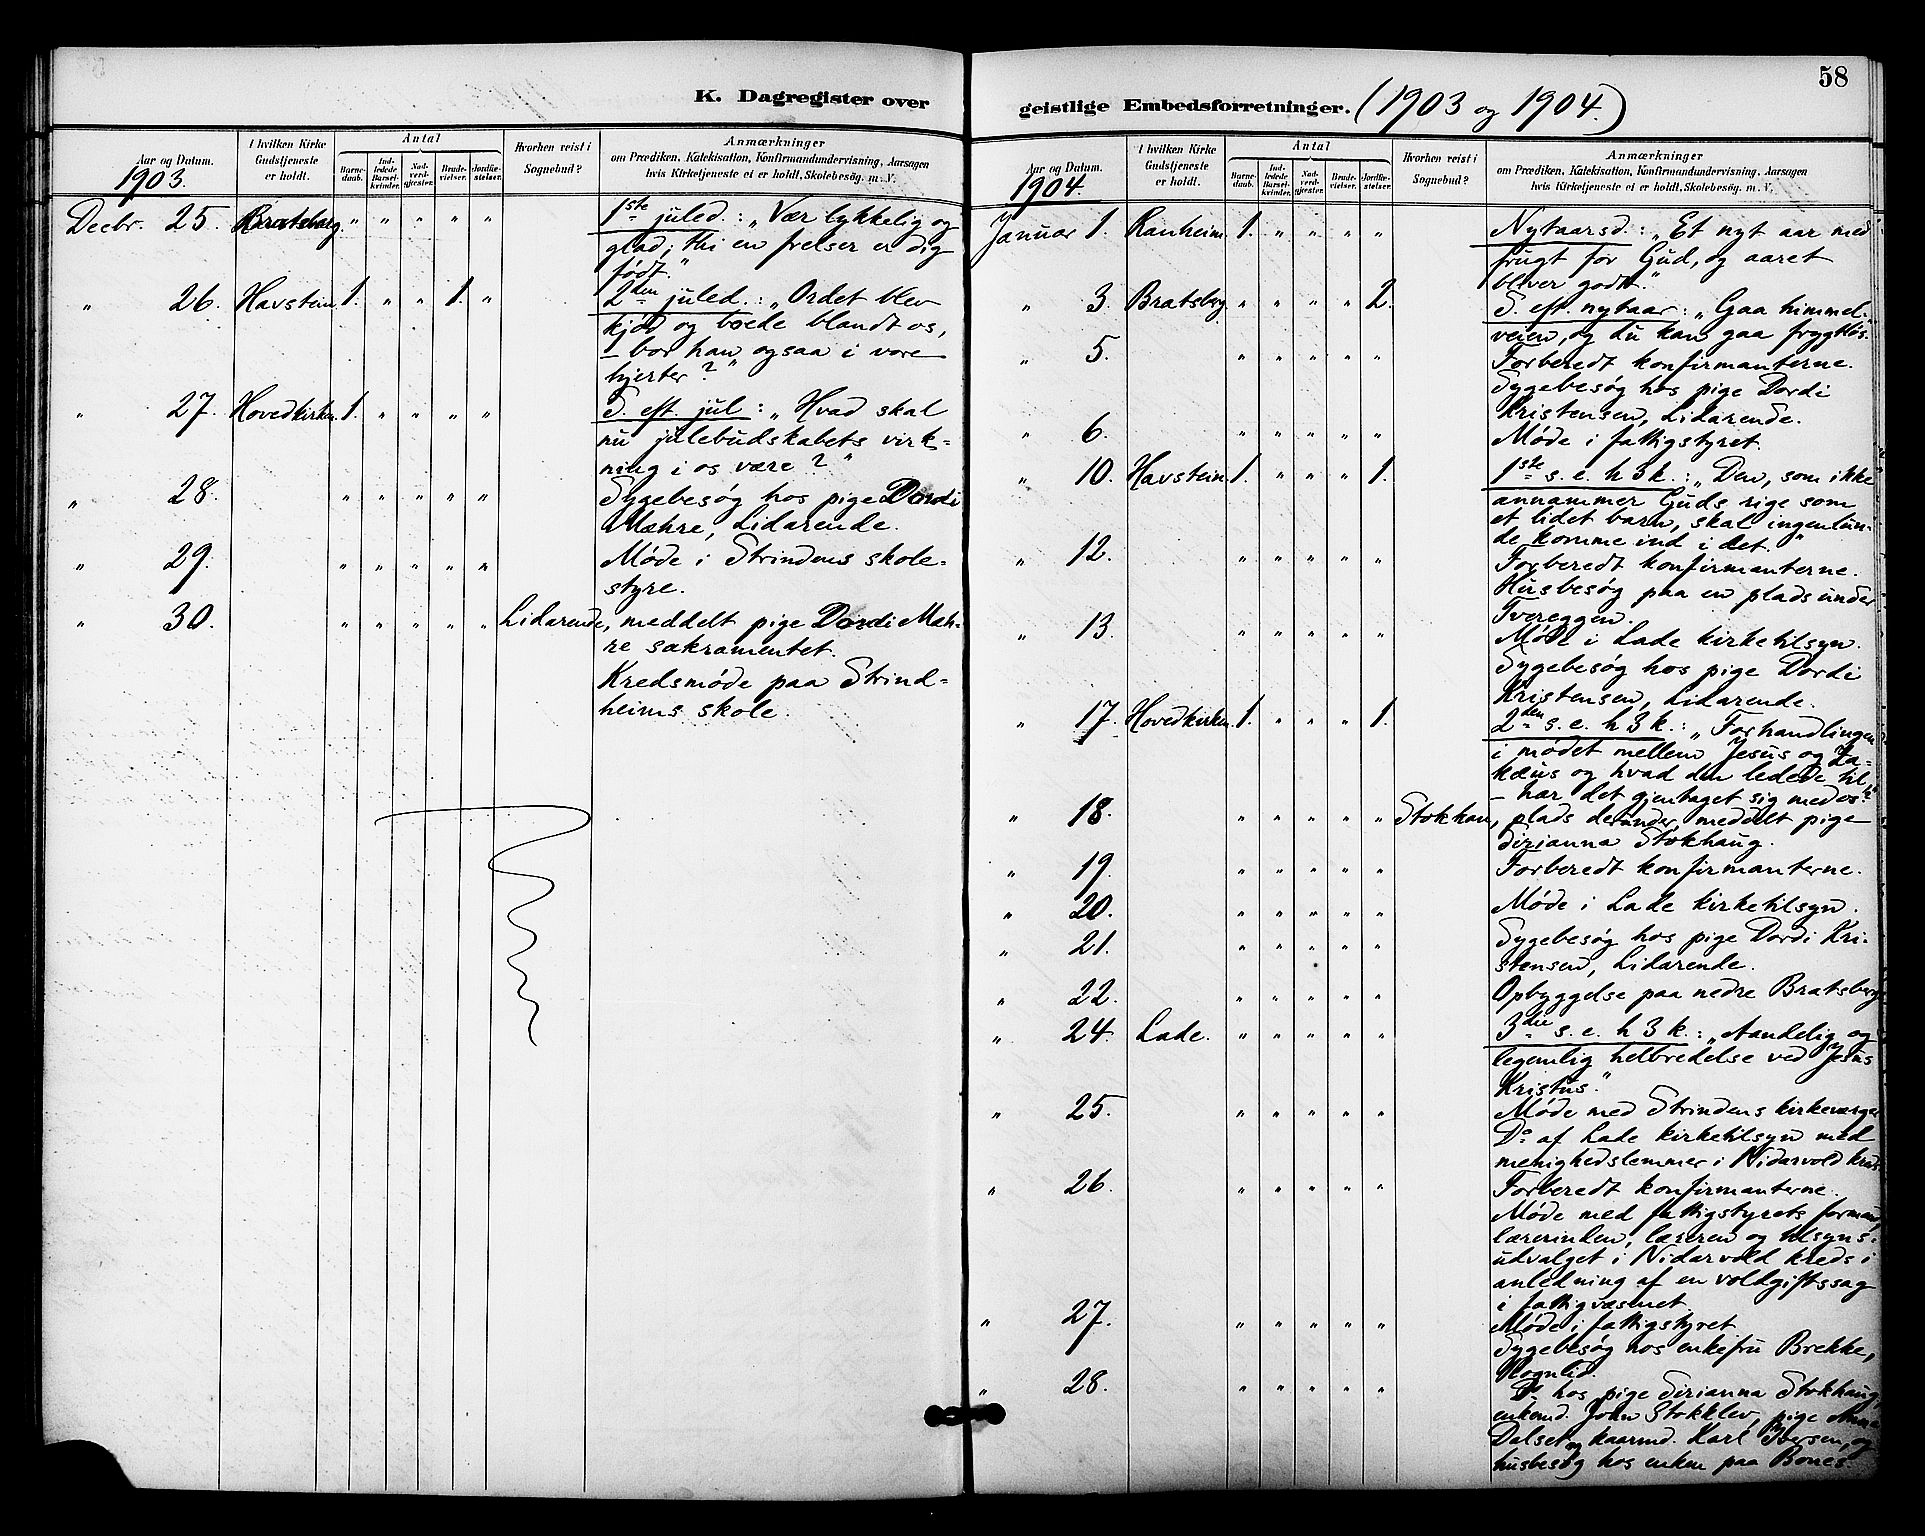 K. Dagregister over
Aar og Datum.
1903.
I hvilken Kirke
Gudstjeneste
er holdt.
Antal
Barne-
daab.
Ind-
ledede
Barsel-
kvinder.
Nad-
verd-
gjester.
Brude-
vielser.
Jordfæ-
stelser.
Hvorhen reist i
Sognebud?
Anmærkninger
om Prædiken, Katekisation, Konfirmandundervisning, Aarsagen
hvis Kirketjeneste ei er holdt, Skolebesøg, m. V.
Decbr. 25. Bratsberg. " " " " " 1ste juled.: „Vær lykkelig og
glad, thi en frelser er dig
født."
" 26. Havstein. 1. " " 1. " 2den juled.: „Ordet blev
kjød og boede blandt os,
– bor han ogsaa i vore
hjerter?"
" 27. Hovedkirken. 1. " " " " S. eft. jul: „Hvad skal
nu julebudskabets virk-
ning i os være?"
" 28. " " " " " Sygebesøg hos pige Dordi
Mæhre, Lidarende.
" 29. " " " " " Møde i Strindens skole-
styre.
" 30. " " " " " Lidarende, meddelt pige Dordi Mæh-
re sakramentet.
Kredsmøde paa Strind-
heims skole.
58
geistlige Embedsforretninger. (1903 og 1904.)
Aar og Datum.
1904.
I hvilken Kirke
Gudstjeneste
er holdt.
Antal
Barne-
daab.
Ind-
ledede
Barsel-
kvinder.
Nad-
verd-
gjester.
Brude-
vielser.
Jordfæ-
stelser.
Hvorhen reist i
Sognebud?
Anmærkninger
om Prædiken, Katekisation, Konfirmandundervisning, Aarsagen
hvis Kirketjeneste ei er holdt, Skolebesøg, m. V.
Januar 1. Ranheim. 1. " " " " Nytaarsd.: „Et nyt aar med
frugt for Gud, og aaret
bliver godt."
" 3. Bratsberg " " " " 2. S. eft. nytaar: „Gaa himmel-
veien, og du kan gaa frygtløs."
" 5. " " " " " Forberedt konfirmanterne.
Sygebesøg hos pige Dordi
Kristensen, Lidarende.
" 6. " " " " " Møde i fattigstyret.
" 10. Havstein. 1. " " " 1. 1ste s. e. h 3 k.: „Den, som ikke
annammer Guds rige som
et lidet barn, skal ingenlun-
de komme ind i det."
" 12. " " " " " Forberedt konfirmanterne.
Husbesøg paa en plads under
Tvereggen.
" 13. " " " " " Møde i Lade kirketilsyn.
Sygebesøg hos pige Dordi
Kristensen, Lidarende.
" 17. Hovedkirken. 1. " " " 1. 2den s. e. h 3 k.: „Forhandlingen
i mødet mellem Jesus og Za-
kæus og hvad den ledede til
– har det gjentaget sig med os?"
" 18. " " " " " Stokkan, plads derunder, meddelt pige
Sirianna Stokhaug.
" 19. " " " " " Forberedt konfirmanterne.
" 20. " " " " " Møde i Lade kirketilsyn.
" 21. " " " " " Sygebesøg hos pige Dordi Kri-
stensen, Lidarende.
" 22. " " " " " Opbyggelse paa nedre Bratsberg
" 24. Lade. " " " " " 3die s. e. h 3 k.: „Aandelig og
legemlig helbredelse ved Jesus
Kristus."
" 25. " " " " " Møde med Strindens kirkeverger
Do af Lade kirketilsyn med
menighedslemmer i Nidarvold kreds
" 26. " " " " " Forberedt konfirmanterne.
Møde med fattigstyrets formand,
lærerinden, læreren og tilsyns-
udvalget i Nidarvold kreds i
anledning af en voldgiftssag
i fattigvæsenet.
" 27. " " " " " Møde i fattigstyret
Sygebesøg hos enkefru Brekke,
Rognlid.
" 28. " " " " " Do hos pige Sirianna Stokhaug,
enkemd. John Stokklev, pige Anna
Dalset og kaarmd. Karl Iversen, og
husbesøg hos enken paa Bones.